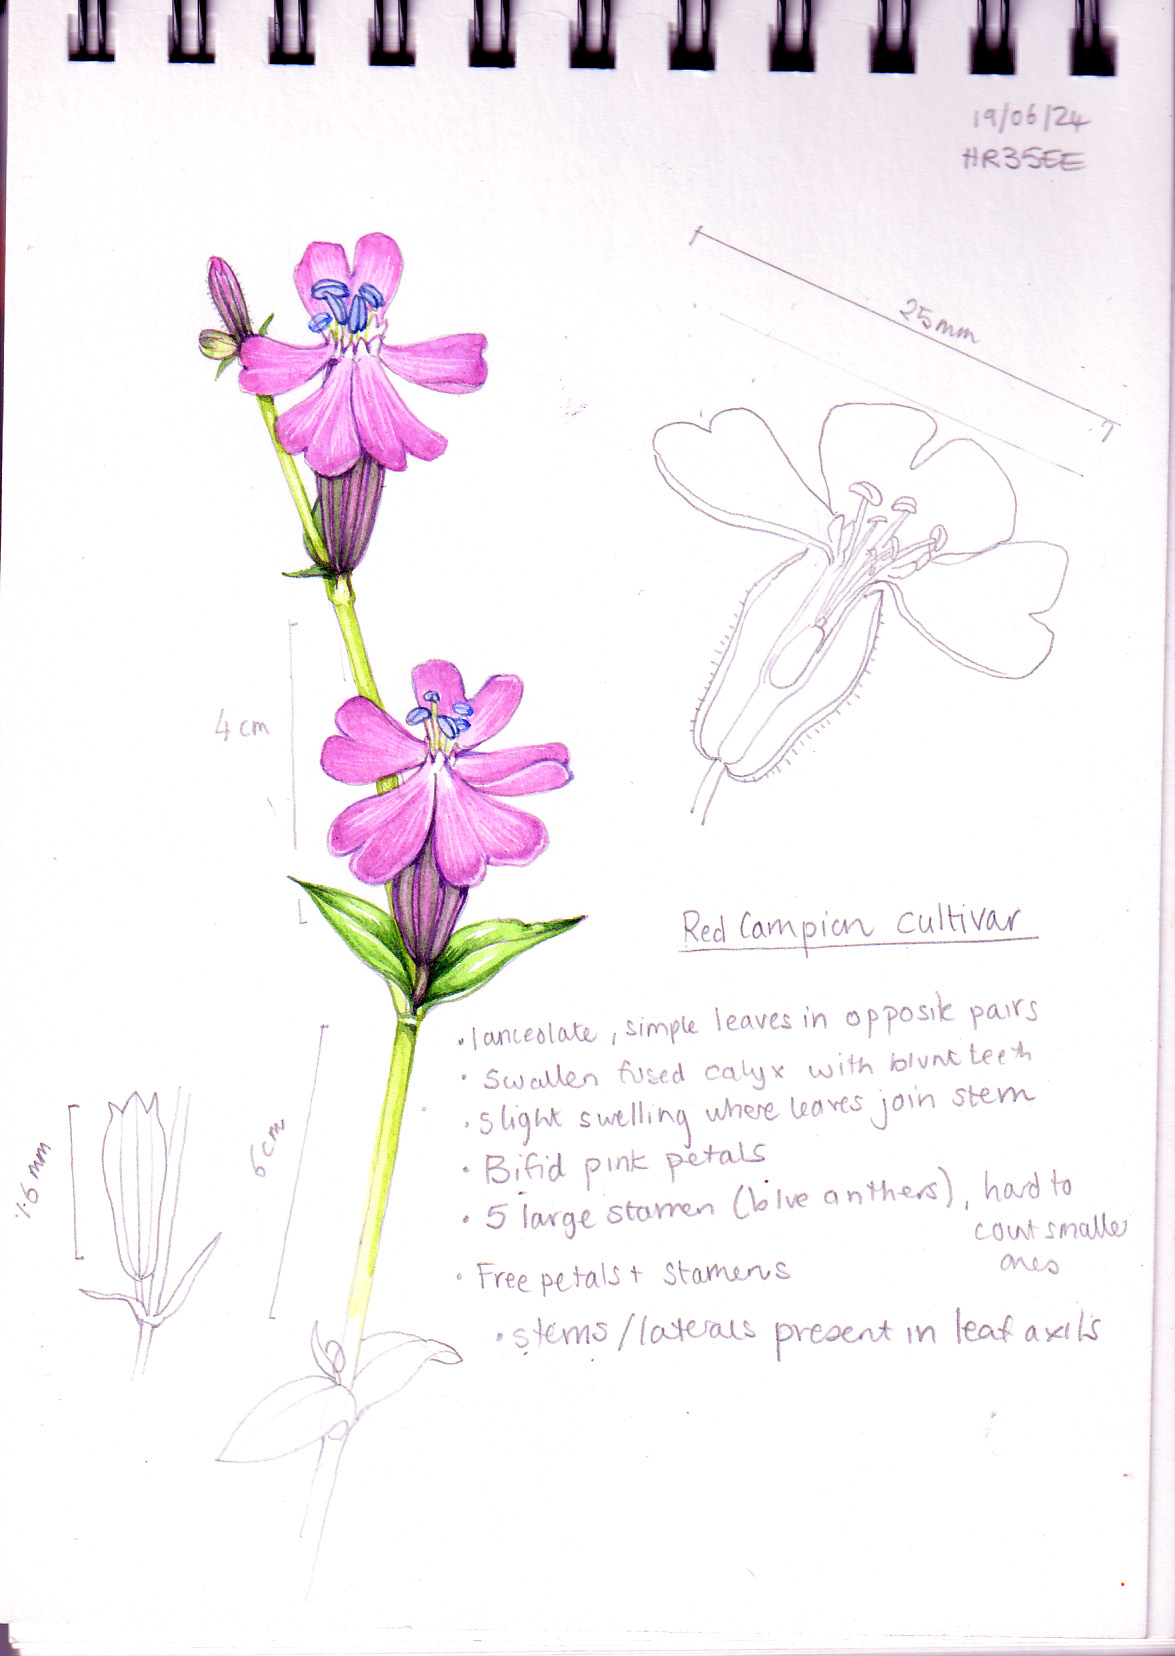 19/06/24
HR35EE
25mm
4cm
Red Campion cultivar
• lanceolate, simple leaves in opposite pairs
• Swollen fused calyx with blunt teeth
• slight swelling where leaves join stem
• Bifid pink petals
• 5 large stamen (blue anthers), hard to
count smaller
ones
• Free petals + stamens
• stems/laterals present in leaf axils
6cm
1.6mm